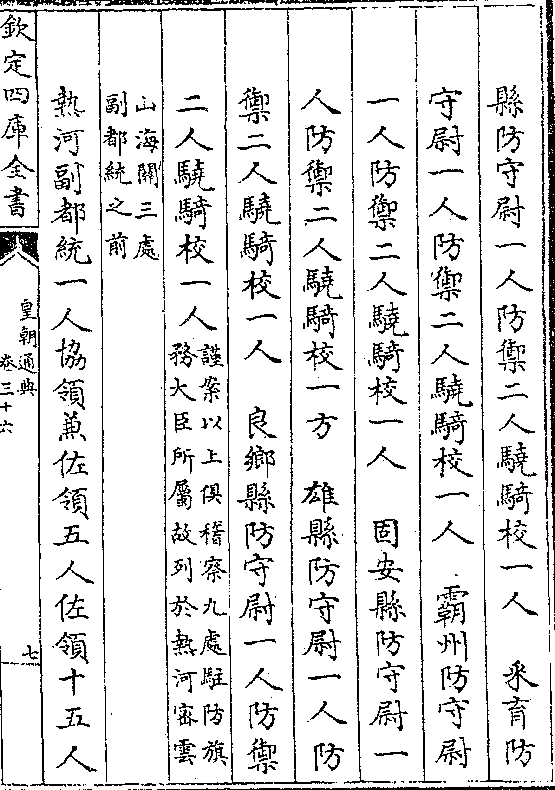 縣防守尉一人防禦二人驍騎校一人　采育防
守尉一人防禦二人驍騎校一人　霸州防守尉
一人防禦二人驍騎校一人　固安縣防守尉一
人防禦二人驍騎校一方　雄縣防守尉一人防
禦二人驍騎校一人　良鄉縣防守尉一人防禦
二人驍騎校一人
謹案以上俱稽察九處駐防旗
務大臣所屬故列於熱河密雲
山海關三處
副都統之前
熱河副都統一人協領兼佐領五人佐領十五人
欽定四庫全書
皇朝通典
卷三十六
七